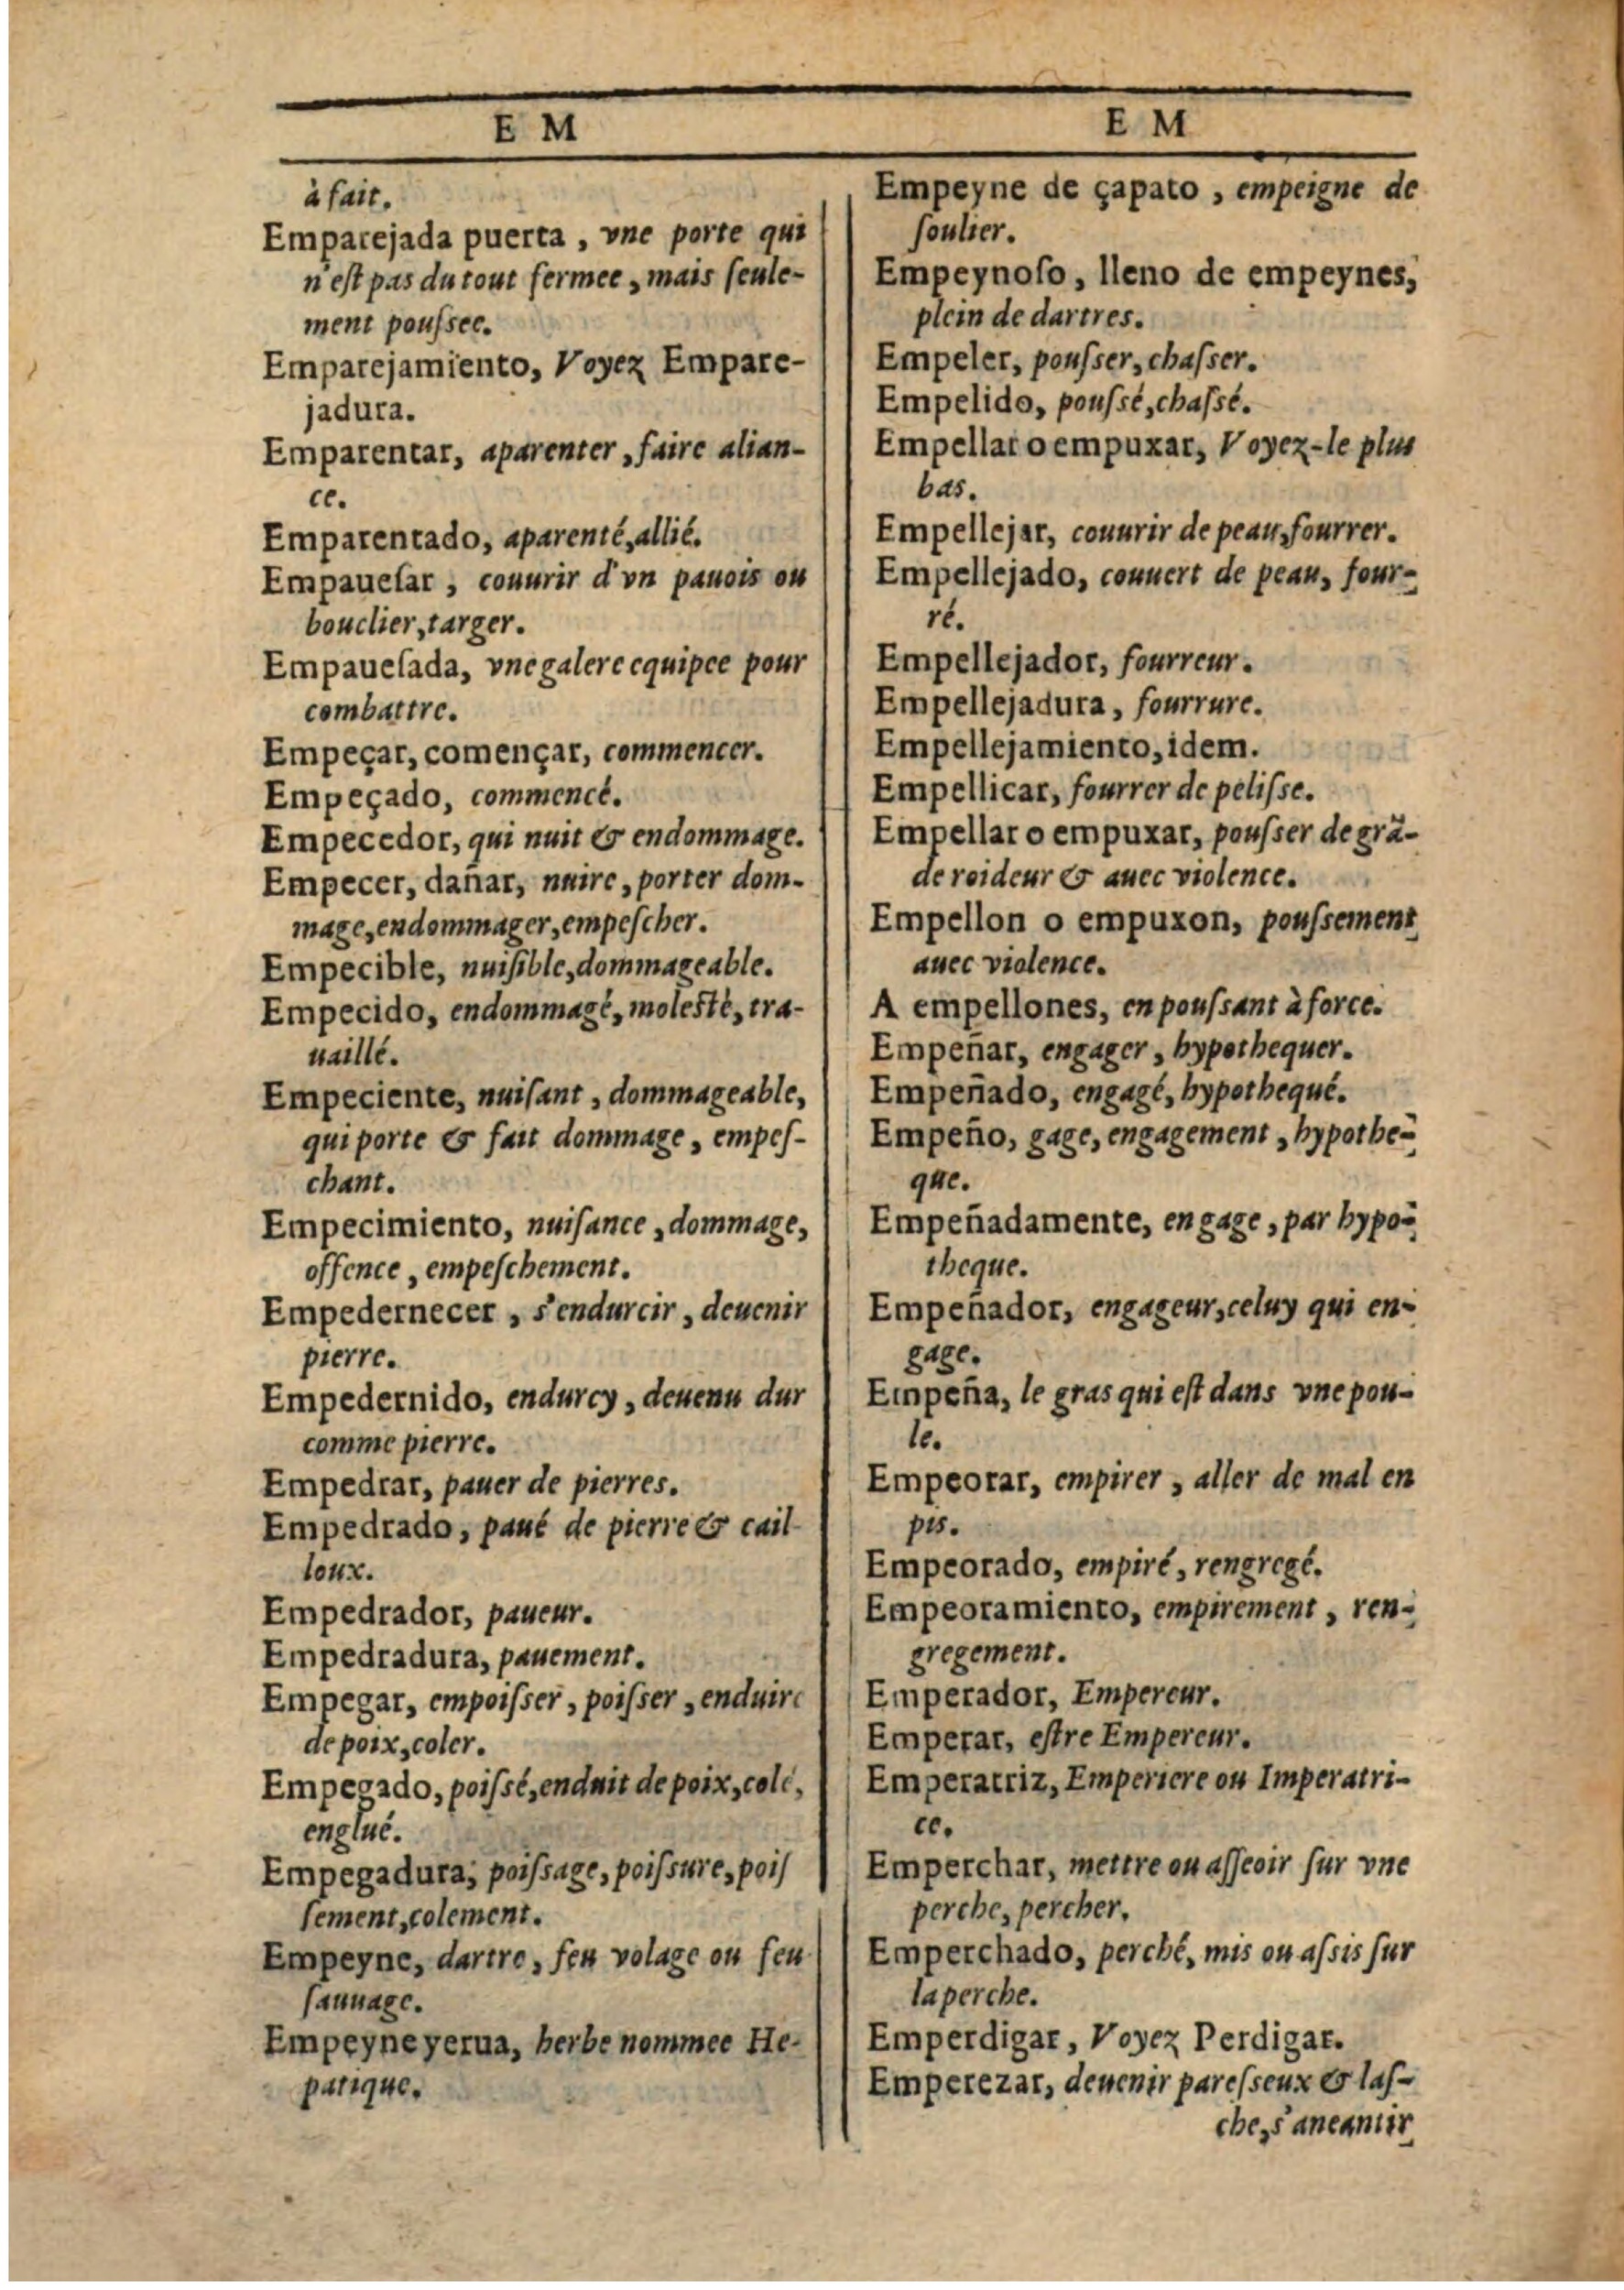 E M
à fait.
Emparejada puerta, vne porte qui
n'eſt pas du tout fermee, mais ſeule-
ment pouſſee.
Emparejamiento, Voyez Empare-
jadura.
Emparentar, aparenter, faire alian-
ce.
Emparentado, aparenté, allié.
Empaueſar, couurir d'vn pauois ou
bouclier, targer.
Empaueſada, vne galere equipee pour
combattre.
Empeçar, començar, commencer.
Empeçado, commencé.
Empecedor, qui nuit & endommage.
Empecer, dañar, nuire, porter dom-
mage, endommager, empeſcher.
Empecible, nuiſible, dommageable.
Empecido, endommagé, moleſté, tra-
uaillé.
Empeciente, nuiſant, dommageable,
qui porte & fait dommage, empeſ-
chant.
Empecimiento, nuiſance, dommage,
offence, empeſchement.
Empedernecer, s'endurcir, deuenir
pierre.
Empedernido, endurcy, deuenu dur
comme pierre.
Empedrar, pauer de pierres.
Empedrado, paué de pierre & cail
loux.
Empedrador, paueur.
Empedradura, pauement.
Empegar, empoiſſer, poiſſer, enduire
de poix, coler.
Empegado, poiſſé, enduit de poix, colé,
englué.
Empegadura, poiſſage, poiſſure, poiſ
ſement, colement.
Empeyne, dartre, feu volage ou feu
ſauuage.
Empeyne yerua, herbe nommee He-
patique.
E M
Empeyne de çapato, empeigne de
ſoulier.
Empeynoſo, lleno de empeynes,
plein de dartres.
Empeler, pouſſer, chaſſer.
Empelido, pouſſé, chaſſé.
Empellar o empuxar, Voyez-le plus
bas.
Empellejar, couurir de peau, fourrer.
Empellejado, couuert de peau, four-
ré.
Empellejador, fourreur.
Empellejadura, fourrure.
Empellejamiento, idem.
Empellicar, fourrer de peliſſe.
Empellar o empuxar, pouſſer de grā-
de roideur & auec violence.
Empellon o empuxon, pouſſement
auec violence.
A empellones, en pouſſant à force.
Empeñar, engager, hypothequer.
Empeñado, engagé, hypothequé.
Empeño, gage, engagement, hypothe-
que.
Empeñadamente, en gage, par hypo-
theque.
Empeñador, engageur, celuy qui en-
gage.
Empeña, le gras qui eſt dans vne pou-
le.
Empeorar, empirer, aller de mal en
pis.
Empeorado, empiré, rengregé.
Empeoramiento, empirement, ren-
gregement.
Emperador, Empereur.
Emperar, eſtre Empereur.
Emperatriz, Emperiere ou Imperatri-
ce.
Emperchar, mettre ou aſſeoir ſur vne
perche, percher.
Emperchado, perché, mis ou aſſis ſur
la perche.
Emperdigar, Voyez Perdigar.
Emperezar, deuenir pareſſeux & laſ-
che, s'aneantir